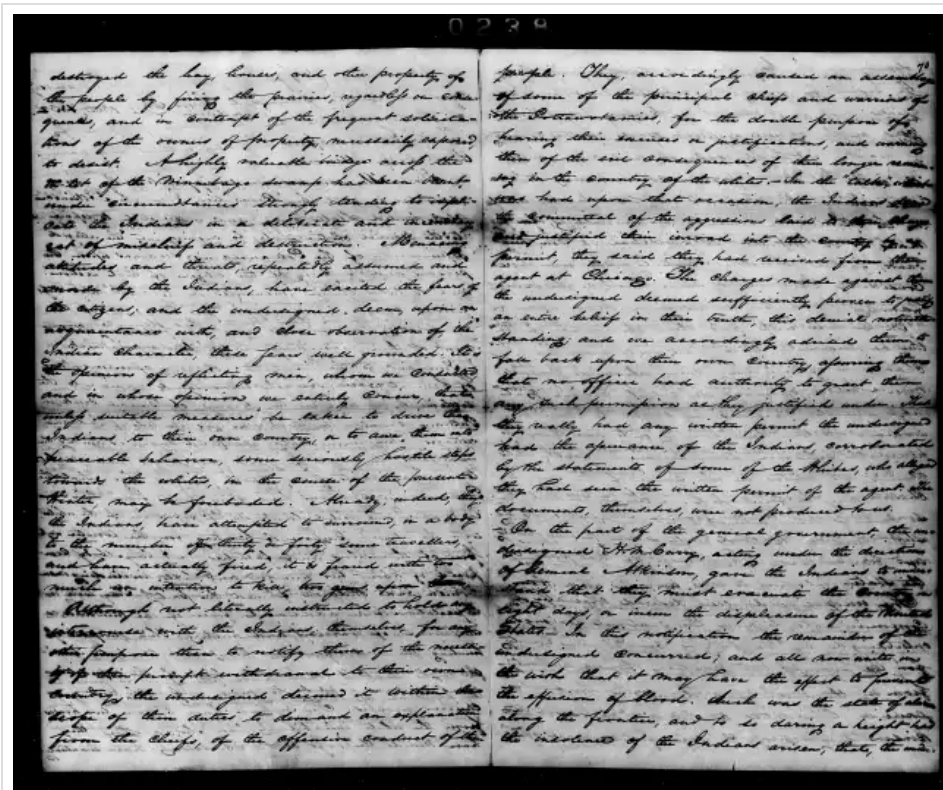 0238
destroyed the hay, houses, and other property of
the people by firing the prairies, regardless on conse
quences, and in contempt of the frequent solicita-
tions of the owners of property, necessarily exposed
to desist. A highly valuable bridge across the
outlet of the Winnebago swamp had been burnt,
under circumstances strongly tending to impli-
cate the Indians in a deliberate and
act of mischief and destruction. Menacing
attitudes and threats, repeatedly assumed and
made by the Indians, have excited the fears of
the citizens; and the undersigned deem, upon an
acquaintance with, and close observation of the
Indian character, these fears well grounded. It is
the opinion of reflecting men, whom we consulted
and in whose opinion we entirely concur, that
unless suitable measures be taken to drive the
Indians to their own country, or to awe them into
peaceable behavior, some seriously hostile steps
towards the whites, in the course of the present
Winter may be foreboded. Already, indeed,
the Indians, have attempted to surround, in a body
to the number of thirty or forty some travellers,
and have actually fired, it is feared with too
much an intention to kill, upon
Although not literally instructed to hold any
intercourse with the Indians, themselves, for any
other purpose than to notify them of the
of their prompt withdrawal to their own
country, the undersigned deemed it within the
scope of their duties, to demand an explanation
from the chiefs, of the offensive conduct of their
70
people. They, accordingly caused an assemblage
of some of the principal chiefs and warriors of
the Potawotamies, for the double purpose of
hearing their excuses or justifications, and warning
them of the evil consequences of their longer remain
ing in the country of the whites. In the talk, which
was had upon that occasion, the Indians
the committal of the aggressions laid to their charge
and justified their inroad into the country
permit, they said they had received from their
agent at Chicago. The charges made against them
the undersigned deemed sufficiently proven to justify
an entire belief in their truth, this denial notwith
standing; and we accordingly advised them to
fall back upon their own country, assuring them
that no officer had authority to grant them
any such permission as they justified under. If
they really had any written permit the undersigned
had the assurance of the Indians, corroborated
by the statements of some of the Whites, who alleged
they had seen the written permit of the agent
documents, themselves, were not produced to us.
On the part of the general government, the un-
dersigned H. M. Curry, acting under the directions
of General Atkinson, gave the Indians to under-
stand that they must evacuate the country
eight days, or incur the displeasure of the United
States. In this notification the remainder of the
undersigned concurred; and all now
the wish that it may have the effect to prevent
the effusion of blood. Such was the state of
along the frontier, and to so daring a height had
the insolence of the Indians arisen, that, the un-